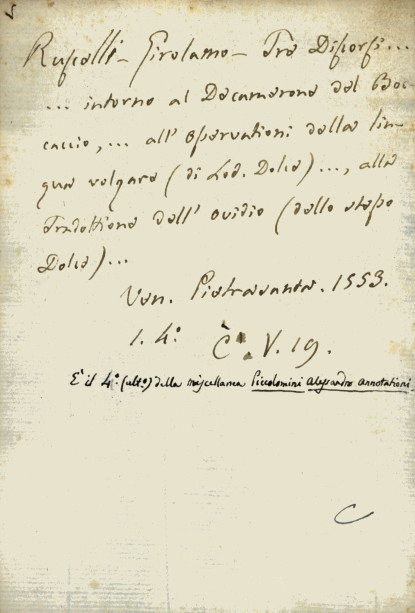 Ruscelli - Girolamo - Tre Discorsi...
... intorno al Decamerone del Boc-
caccio, ... all' Osservationi della lin-
gua volgare (di Lod. Dolce) ..., alla
Tradottione dell' Ovidio (dello stesso
Dolce) ...
Ven. Pietrasanta. 1553.
1. 4°.
C. V. 19.
E' il 4° (ult°) della miscellanea Piccolomini Alessandro annotationi
C